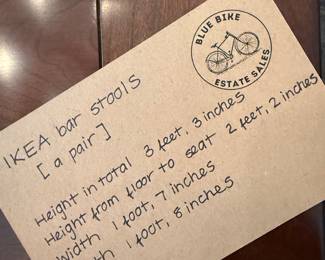 BLUE BIKE
ESTATE SALES
IKEA bar stools
[a pair]
Height in total 3 feet, 3 inches
Height from floor to seat 2 feet, 2 inches
Width 1 foot, 7 inches
1 foot, 8 inches